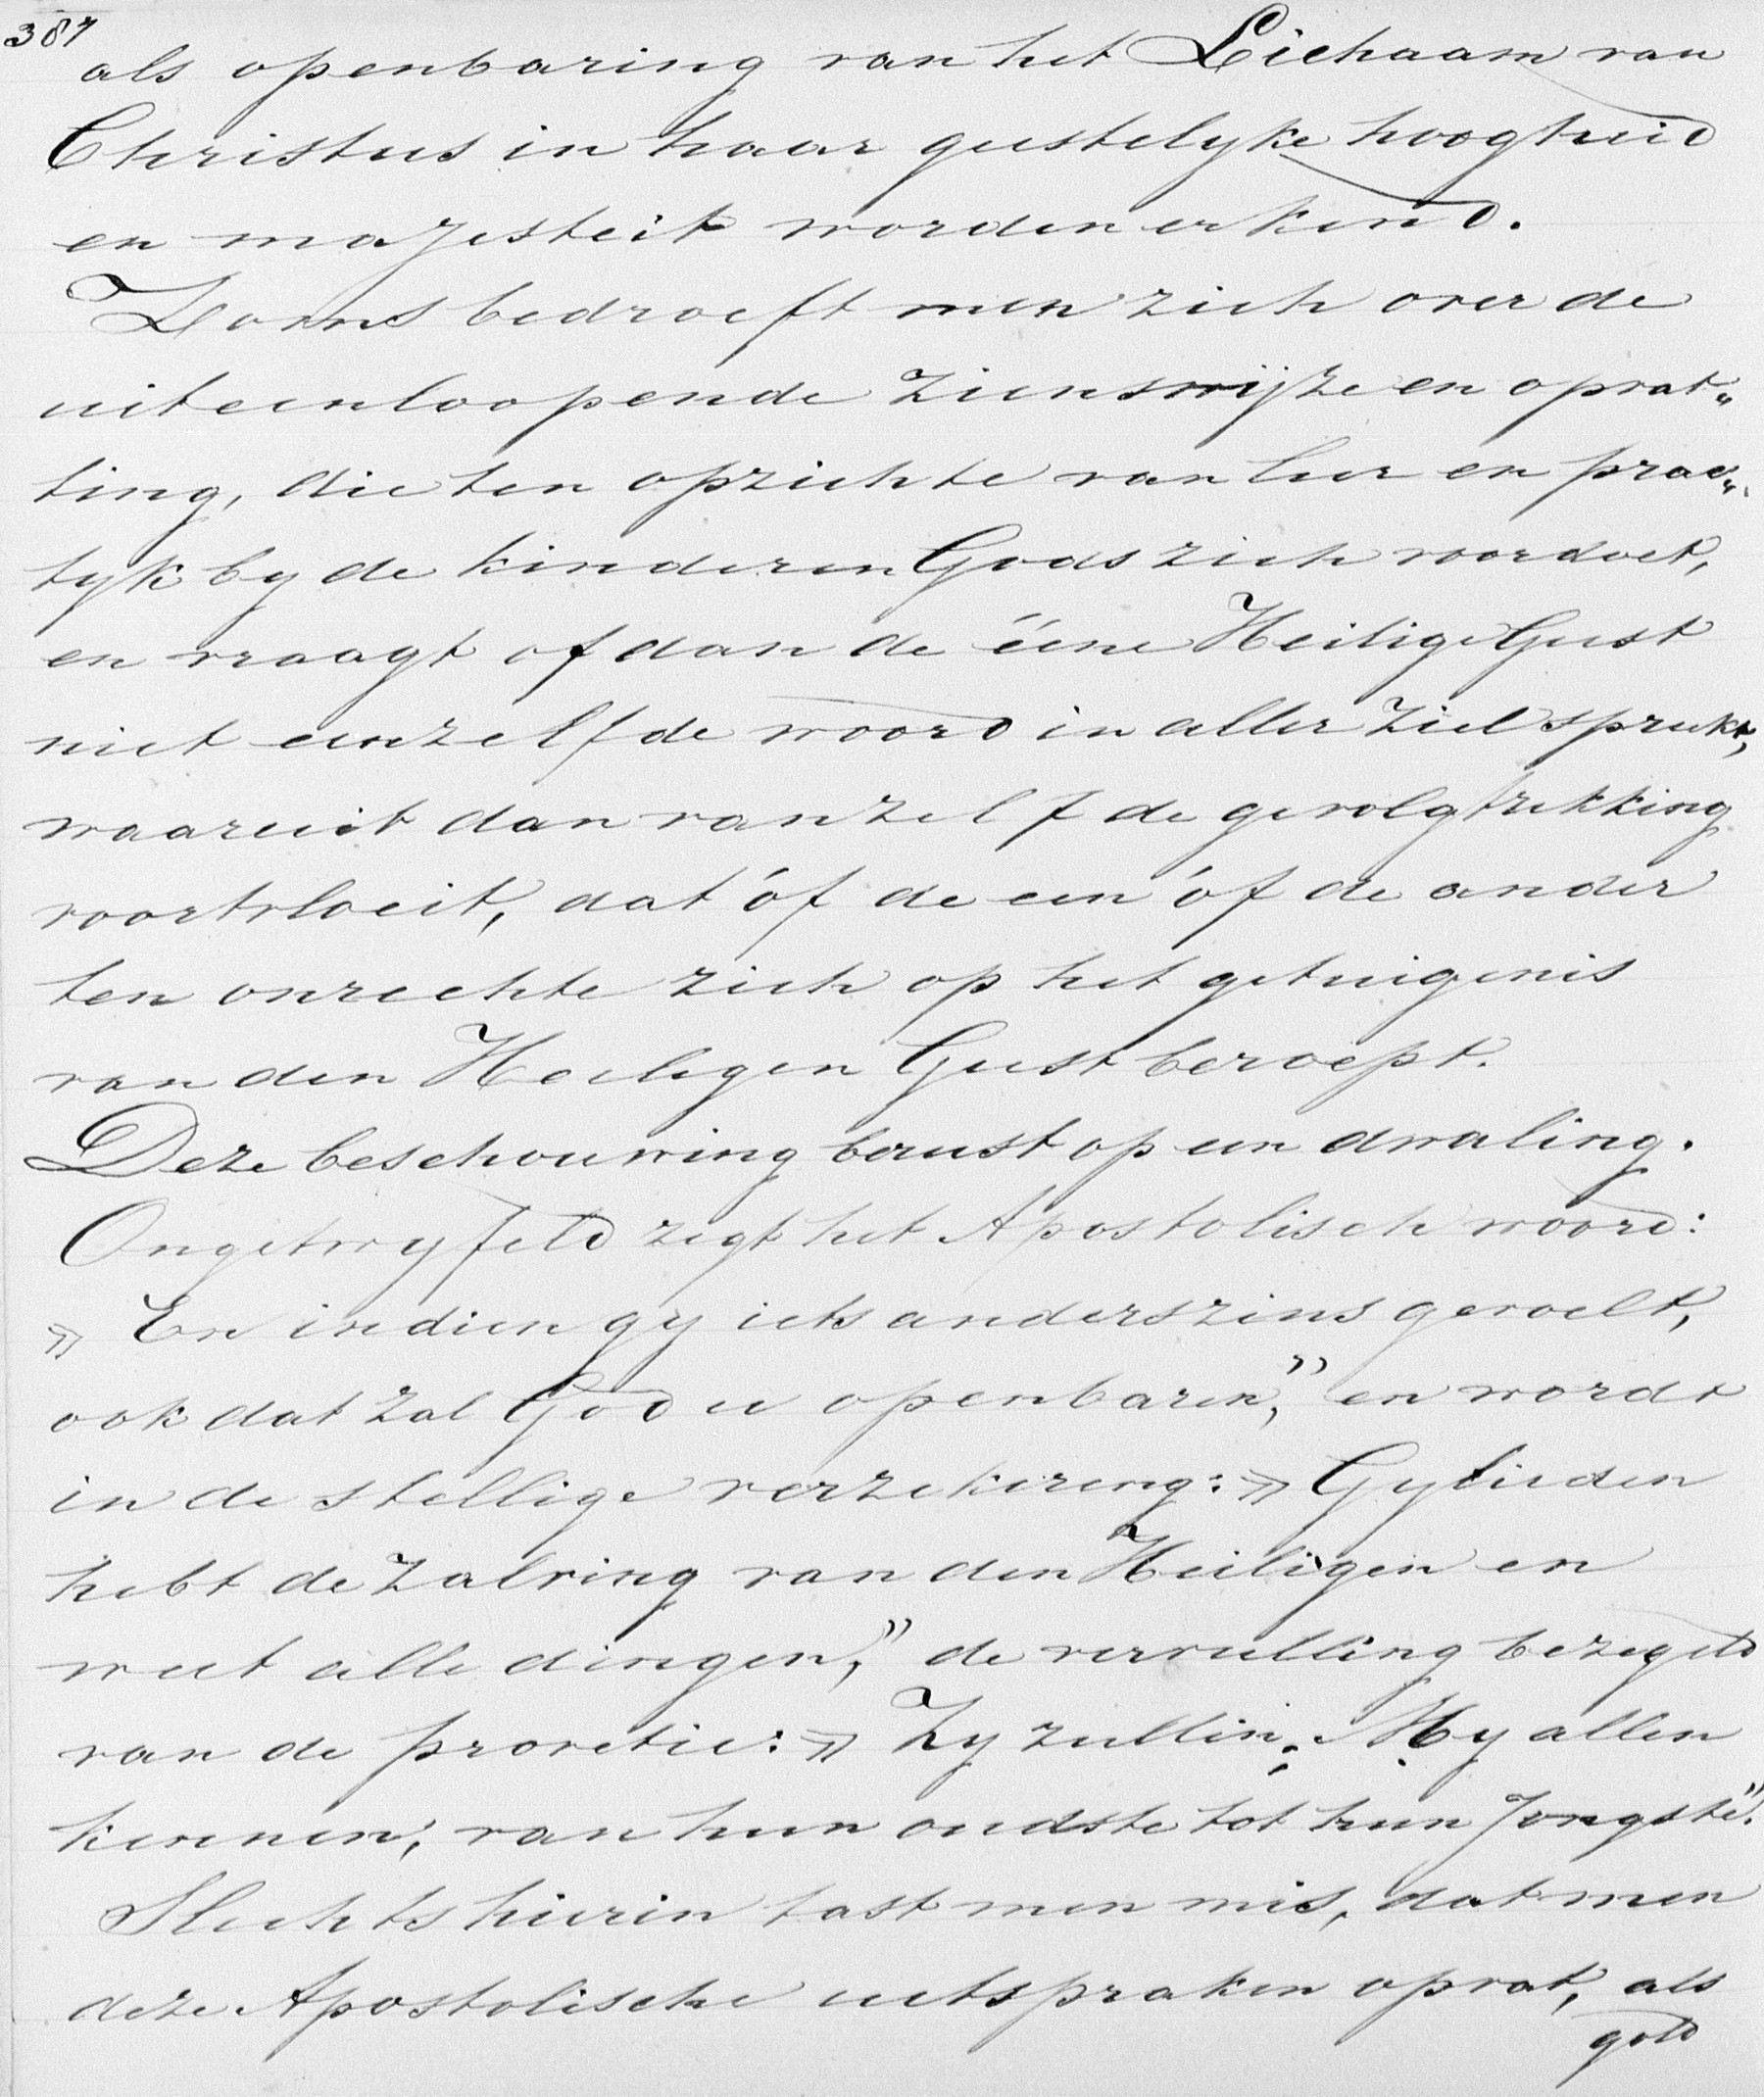 387
als openbaring van het Lichaam van
Christus in haar geestelyke hoogheid
en majesteit worden erkend.
Soms bedroeft men zich over de
uiteenloopende zienswijze en opvat„
ting, die ten opzichte van leer en prac„
tyk by de kinderen Gods zich voordoet,
en vraagt of dan de ééne Heilige Geest
niet eenzelfde woord in aller ziel spreekt,
waaruit dan vanzelf de gevolgtrekking
voortvloeit, dat óf de een óf de ander
ten onrechte zich op het getuigenis
van den Heiligen Geest beroept.
Deze beschouwing berust op een dwaling.
Ongetwyfeld zegt het Apostolisch woord:
» En indien gy iets anderszins gevoelt,
ook dat zal God u openbaren,” en wordt
in de stellige verzekering: » Gylieden
hebt de zalving van den Heiligen en
weet alle dingen,” de vervulling bezegeld
van de profetie: » Zy zullen My allen
kennen, van hun oudste tot hun jongste”.
Slechts hierin tast men mis, dat men
deze Apostolische uitspraken opvat, als
gold